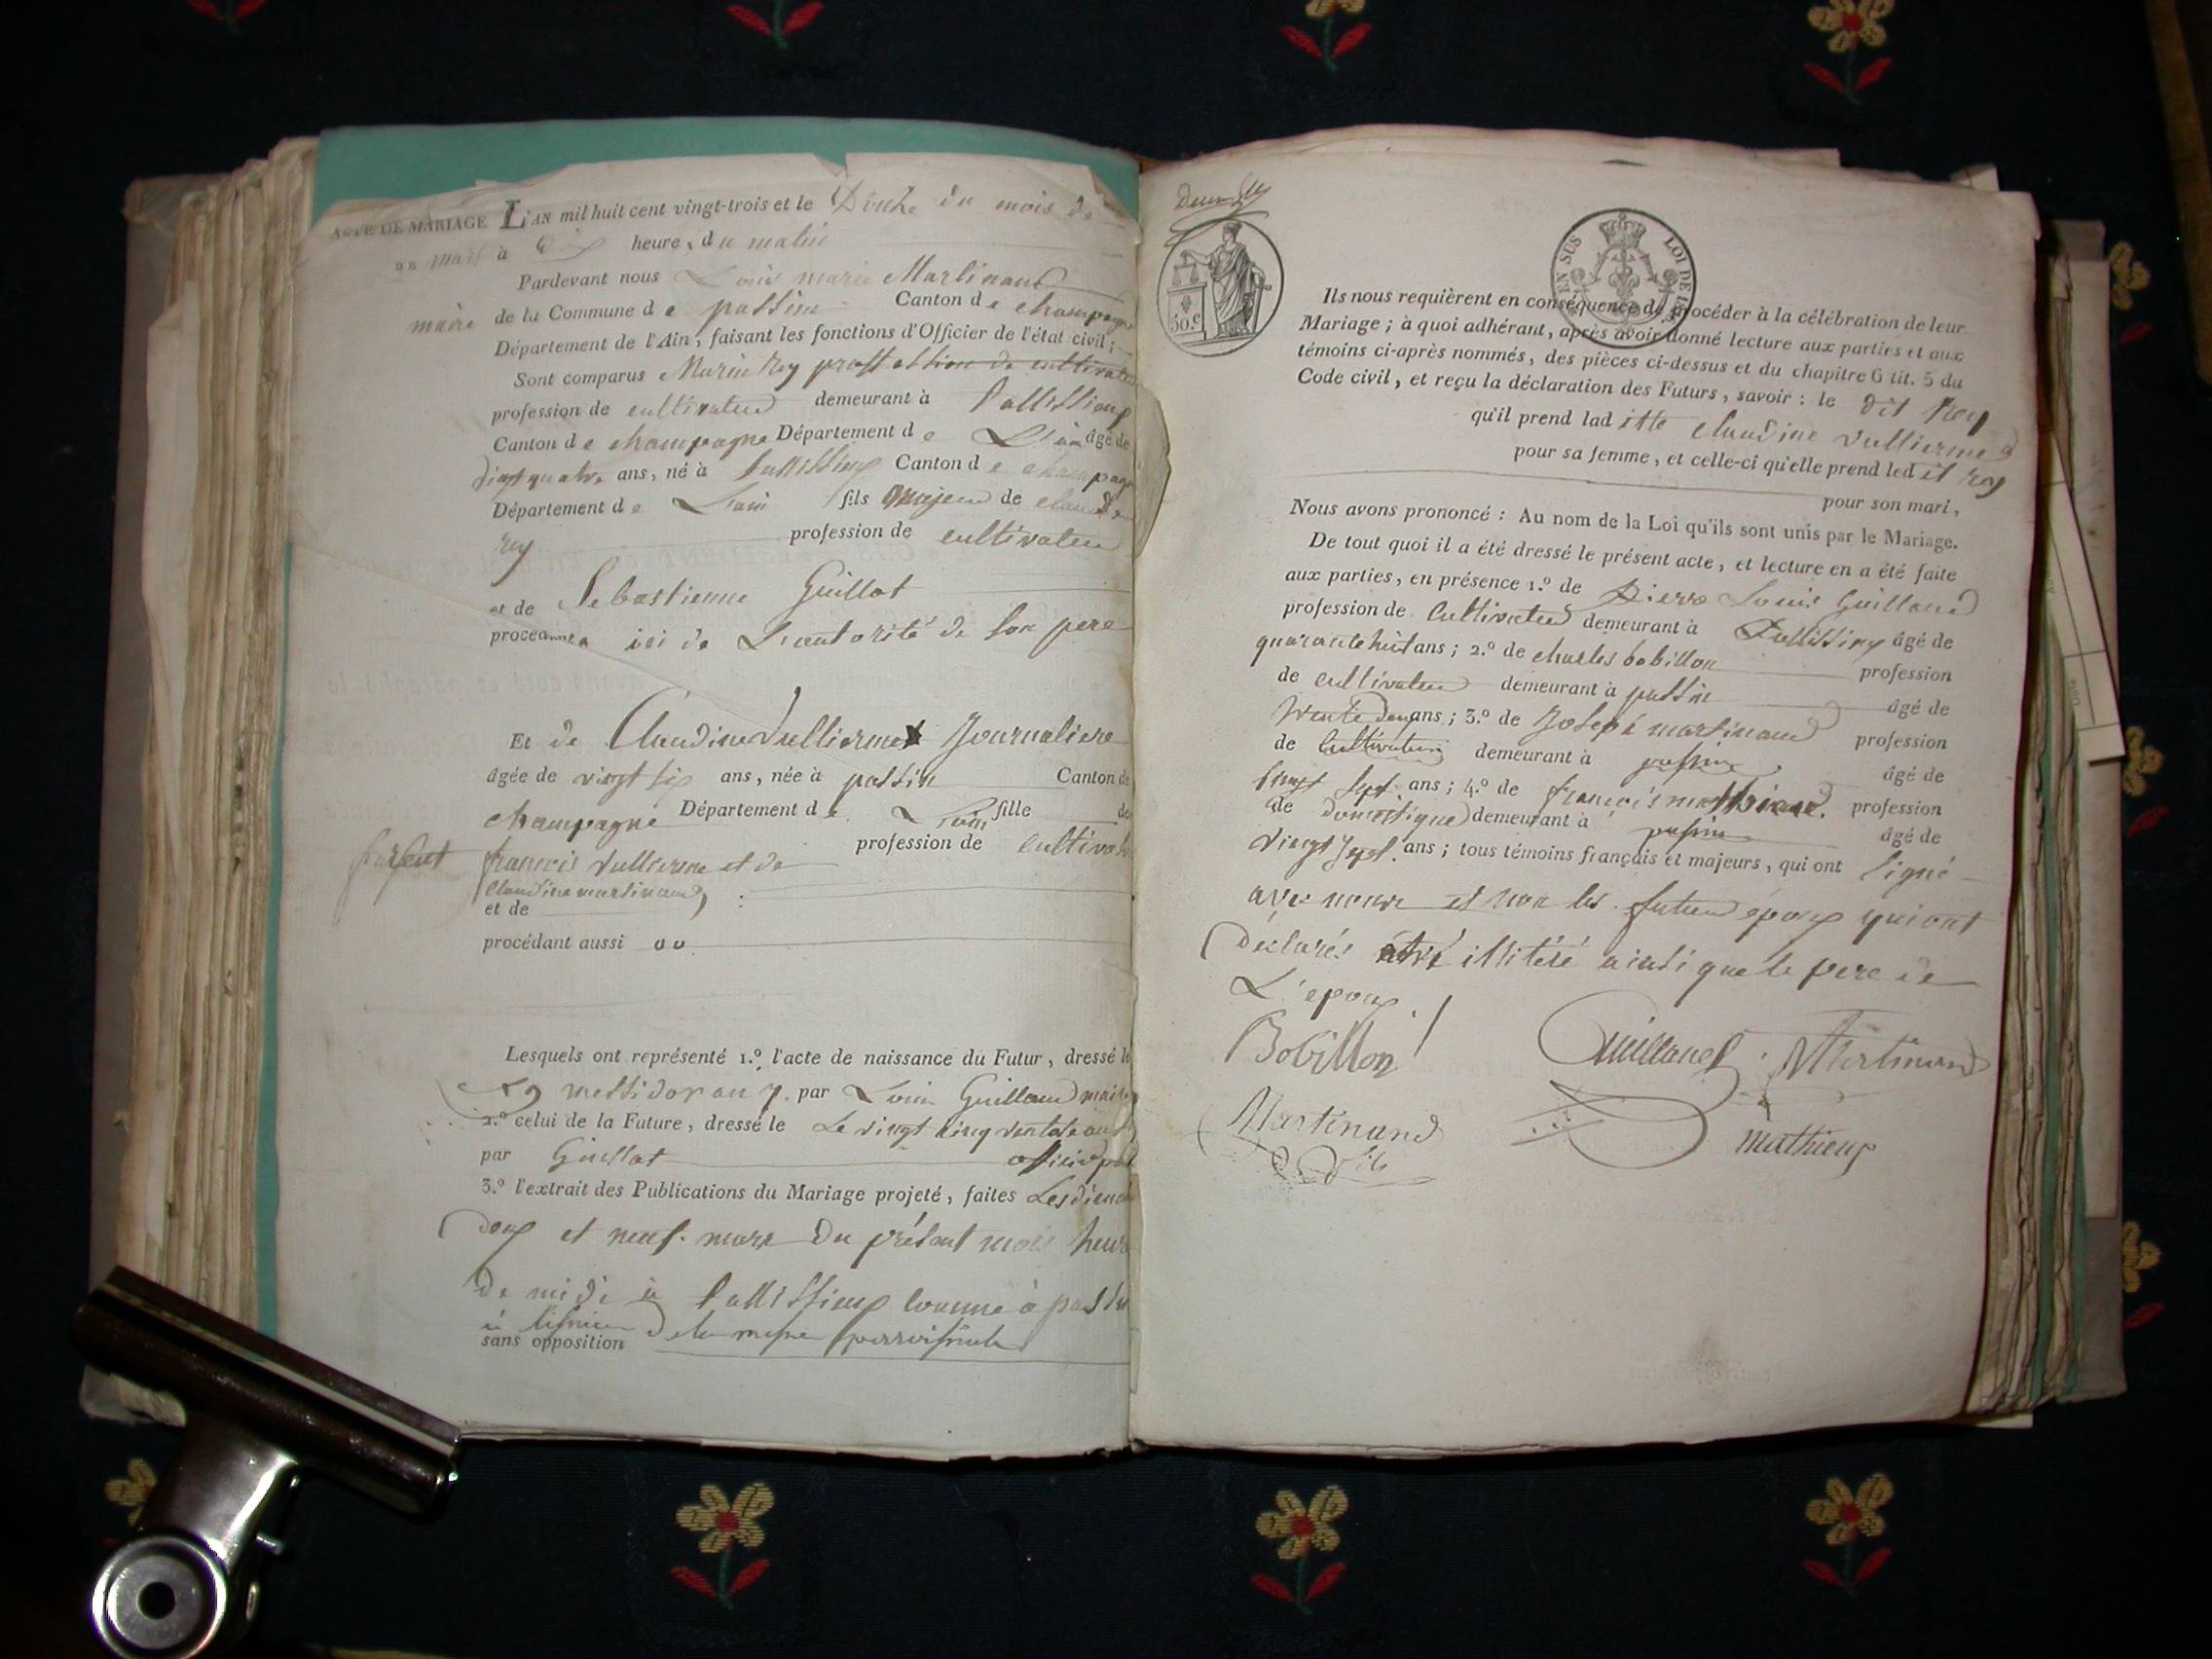 ACTE DE MARIAGE L'AN mil huit cent vingt-trois et le Douze du mois de
mars à Dix heure, du matin
Pardevant nous Louis marie Martinand
maire de la Commune de passin Canton de champagne
Département de l'Ain, faisant les fonctions d'Officier de l'état civil;
Sont comparus Marin Rey proffession de cultivateur
profession de cultivateur demeurant à
Canton de champagne Département de L'ain âgé de
vingt quatre ans, né à Canton de champagne
Département de Lain fils majeur de claude
rey profession de cultivateur
et de Sebastienne Guillot
procédant ici de L'autorité de son pere
Et de Claudine Vullierme Journaliere
âgée de vingt six ans, née à passin Canton de
champagne Département de Lain fille de
francois Vullierme et de profession de cultivat
Claudine martinand
et de
procédant aussi
Lesquels ont représenté 1.º l'acte de naissance du Futur, dressé le
messidor an 7. par Louis Guilland maire
2.º celui de la Future, dressé le Le vingt cinq ventose an
par Guillot
3.º l'extrait des Publications du Mariage projeté, faites Les
deux et neuf mars du présent mois heure
de midi à comme à passin
sans opposition
50.c
EN SUS
LOI DE
Ils nous requièrent en conséquence de procéder à la célébration de leur
Mariage; à quoi adhérant, après avoir donné lecture aux parties et aux
témoins ci-après nommés, des pièces ci-dessus et du chapitre 6 tit. 5 du
Code civil, et reçu la déclaration des Futurs, savoir: le dit Rey
qu'il prend laditte claudine Vullierme
pour sa femme, et celle-ci qu'elle prend ledit rey
pour son mari,
Nous avons prononcé: Au nom de la Loi qu'ils sont unis par le Mariage.
De tout quoi il a été dressé le présent acte, et lecture en a été faite
aux parties, en présence 1.º de Pierre Louis Guilland
profession de Cultivateur demeurant à âgé de
quarante huit ans; 2.º de charles bobillon profession
de cultivateur demeurant à passin âgé de
trente deux ans; 3.º de Joseph martinand profession
de Cultivateur demeurant à passin âgé de
vingt sept ans; 4.º de françois profession
de domestique demeurant à passin âgé de
vingt sept ans; tous témoins français et majeurs, qui ont signé
avec nous et non les futur époux qui ont
déclarés être illitéré ainsi que le pere de
L'epoux
Bobillon Guilland Martinand
Martinand fils mathieux